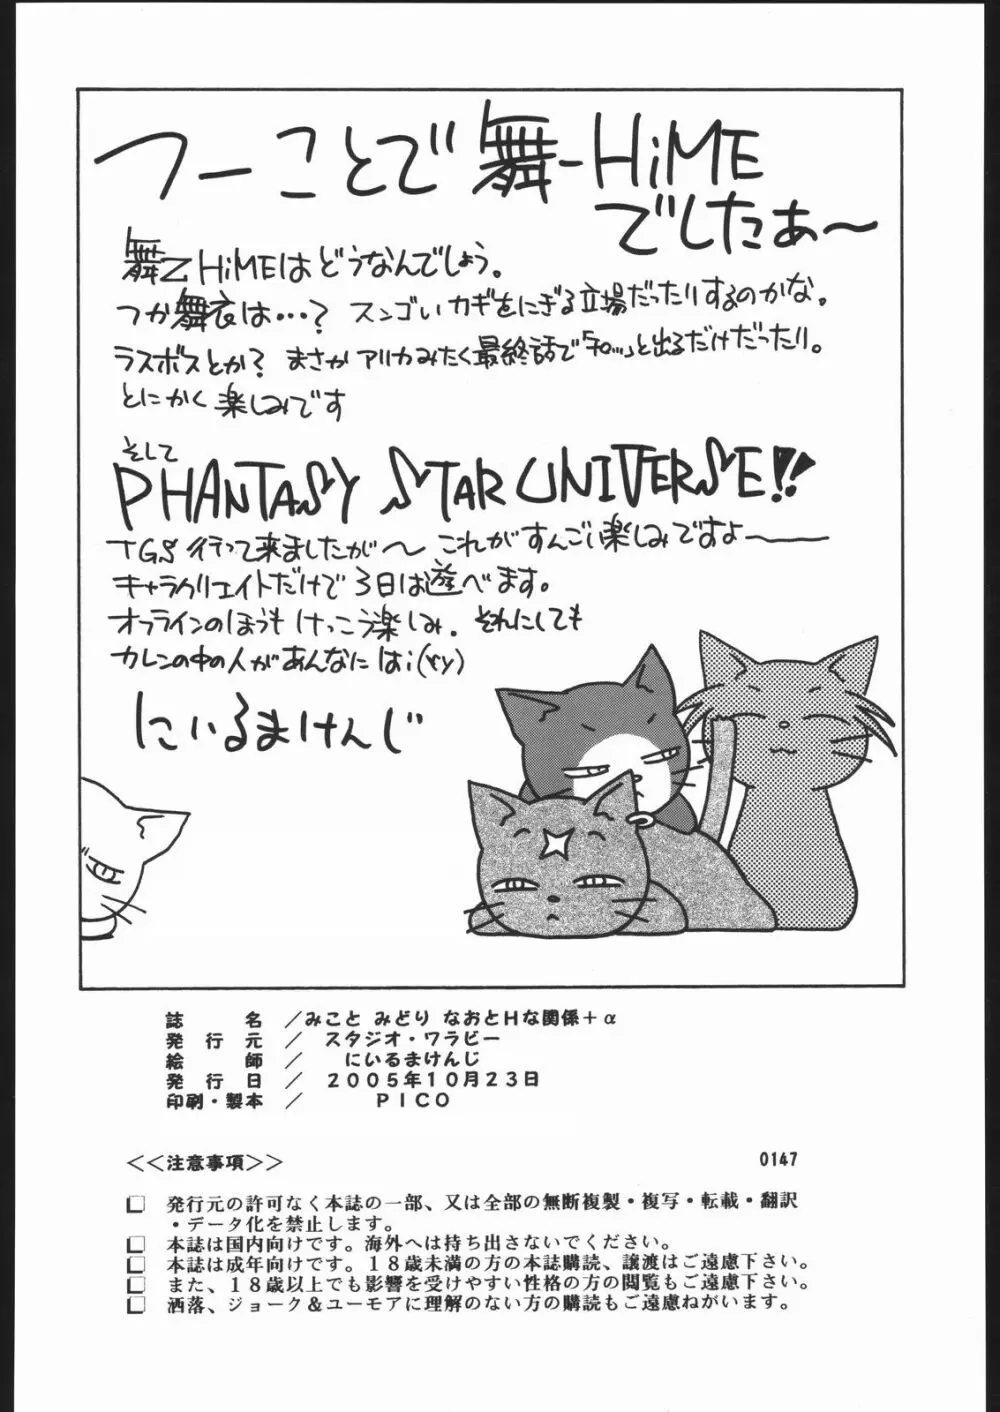 つーことで舞-HiME
でしたぁ〜
舞乙HiMEはどうなんでしょう。
つか舞衣は…？ スンゴいカギをにぎる立場だったりするのかな。
ラスボスとか？ まさかアリカみたく最終話で「チロッ」と出るだけだったり。
とにかく楽しみです
そして
PHANTASY STAR UNIVERSE!!
TGS行って来ましたが〜これがすんごい楽しみですよ――
キャラクリエイトだけで3日は遊べます。
オフラインのほうもけっこう楽しみ。それにしても
カレンの中の人があんなにはi(ry)
にいるまけんじ
誌　名／みこと みどり なおとHな関係＋α
発行元／スタジオ・ワラビー
絵　師／にいるまけんじ
発行日／２００５年１０月２３日
印刷・製本／ＰＩＣＯ
＜＜注意事項＞＞
0147
□ 発行元の許可なく本誌の一部、又は全部の無断複製・複写・転載・翻訳
・データ化を禁止します。
□ 本誌は国内向けです。海外へは持ち出さないでください。
□ 本誌は成年向けです。１８歳未満の方の本誌購読、譲渡はご遠慮下さい。
□ また、１８歳以上でも影響を受けやすい性格の方の閲覧もご遠慮下さい。
□ 洒落、ジョーク＆ユーモアに理解のない方の購読もご遠慮ねがいます。